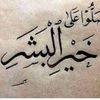 صَلُّوا عَلَى
خَيْرِ الْبَشَر